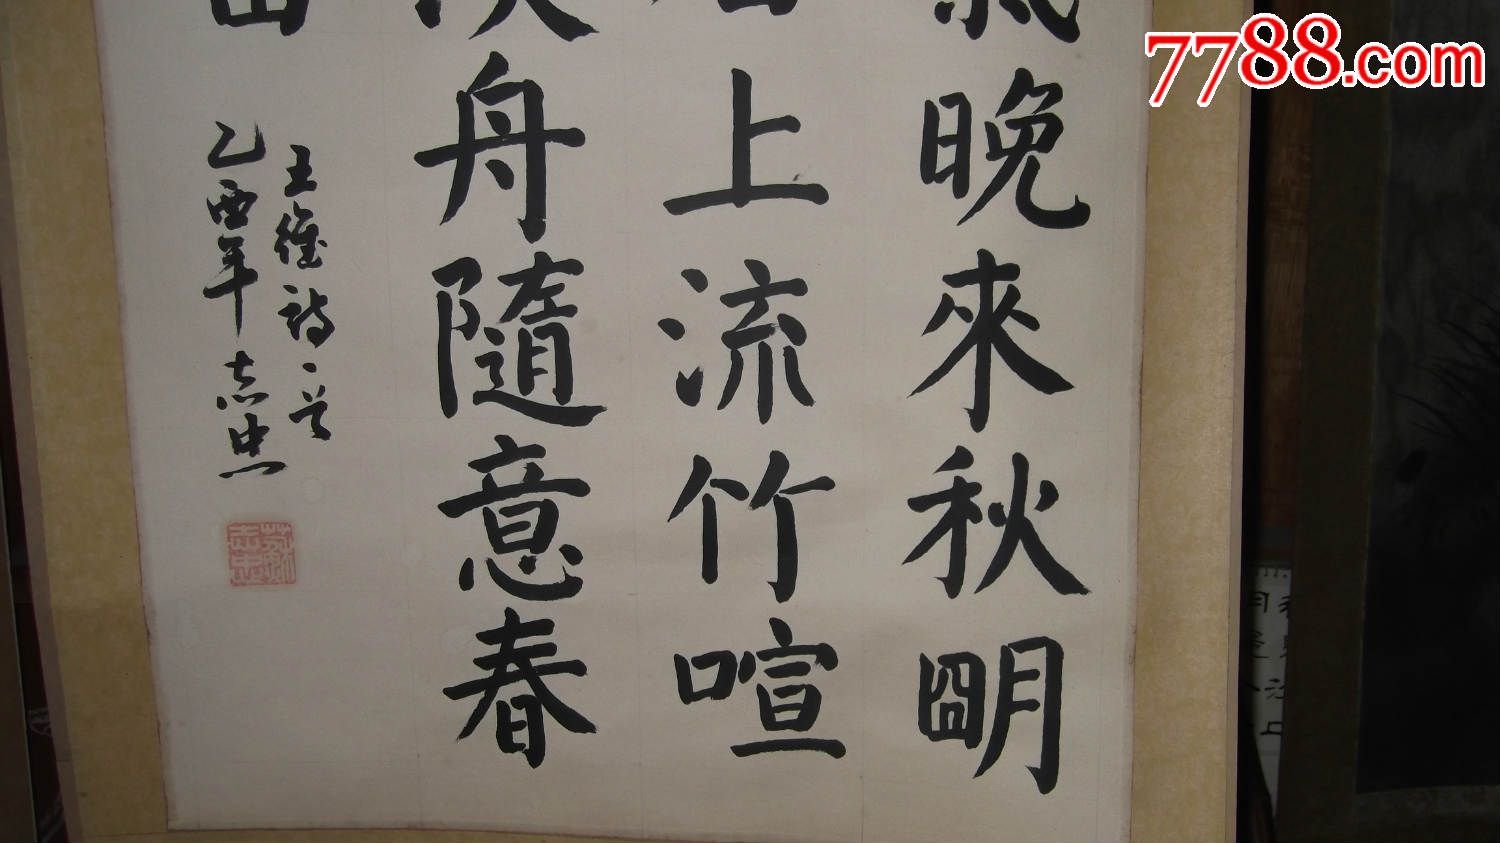 7788.com
晚來秋朙
上流竹喧
舟隨意春
王維詩一首
乙酉年志忠